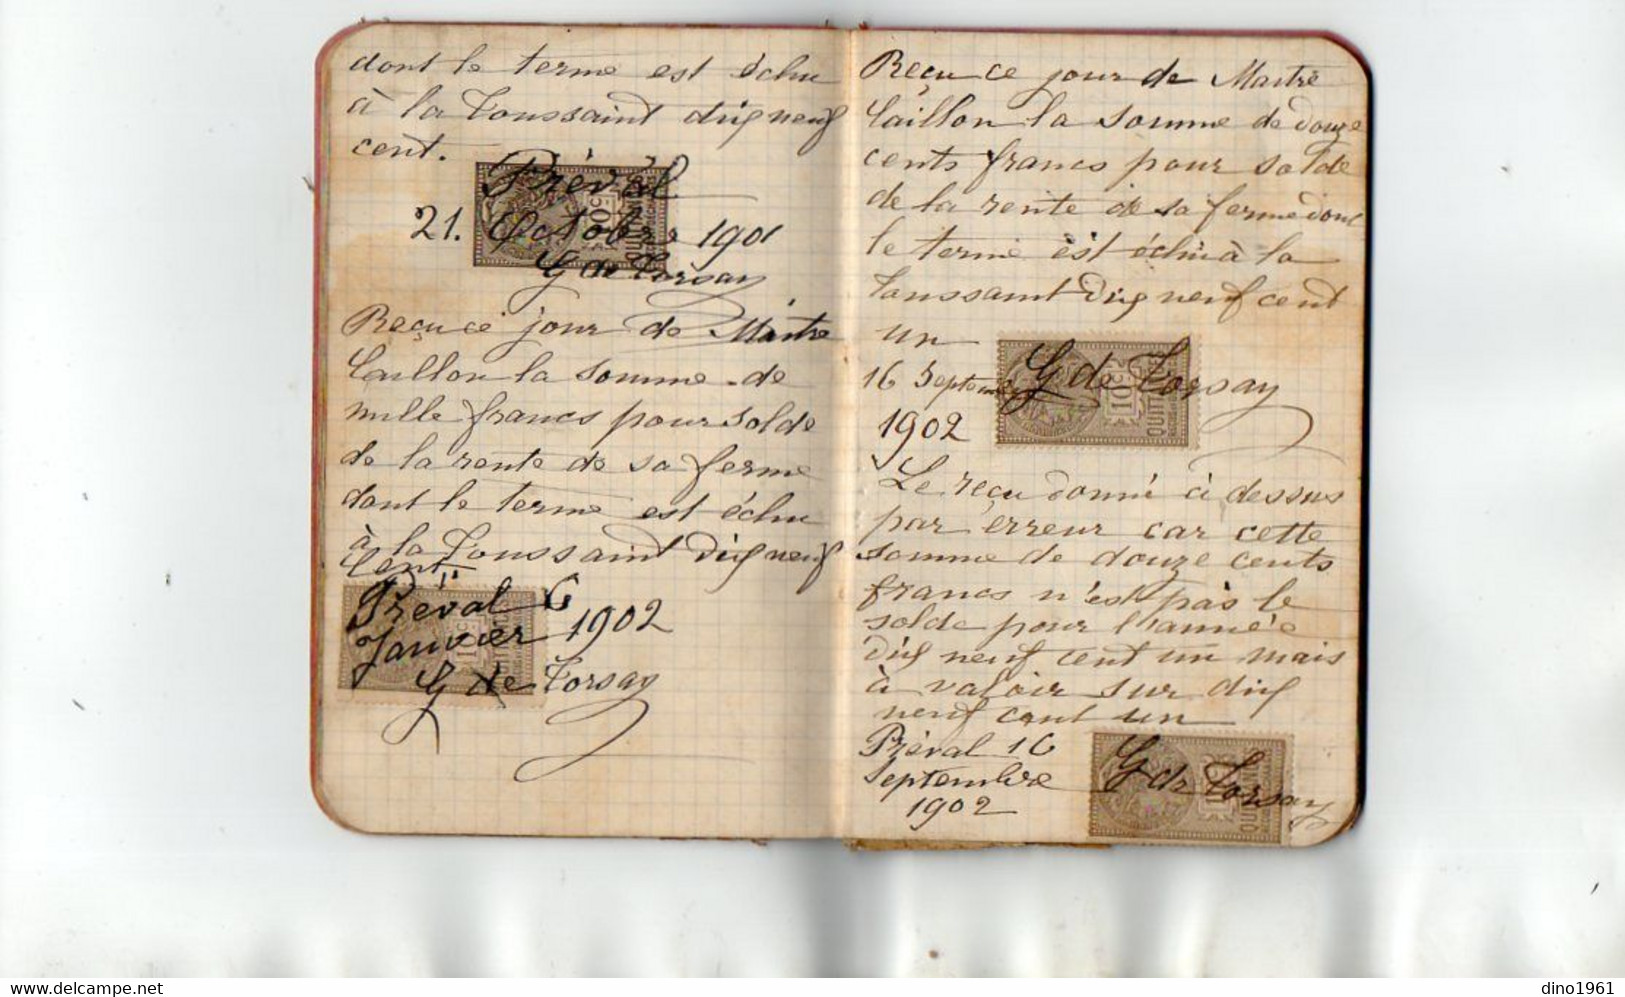 dont le terme est échu
à la Toussaint dix neuf
cent.
Préval
21. Octobre 1901
G de Torsay
Reçu ce jour de Maitre
Caillon la somme de
mille francs pour solde
de la rente de sa ferme
dont le terme est échu
à la Toussaint dix neuf
Cent
Préval 6
Janvier 1902
G de Torsay
Reçu ce jour de Maitre
Caillon la somme de douze
cents francs pour solde
de la rente de sa ferme dont
le terme est échu à la
Toussaint dix neuf cent
un
16 Septembre G de Torsay
1902
10c
QUITTANCES
Le reçu donné ci dessus
par erreur car cette
somme de douze cents
francs n'est pas le
solde pour l'année
dix neuf cent un mais
à valoir sur dix
neuf cent un
Préval 16
Septembre
1902
G de Torsay
02/04/2022
dino1961